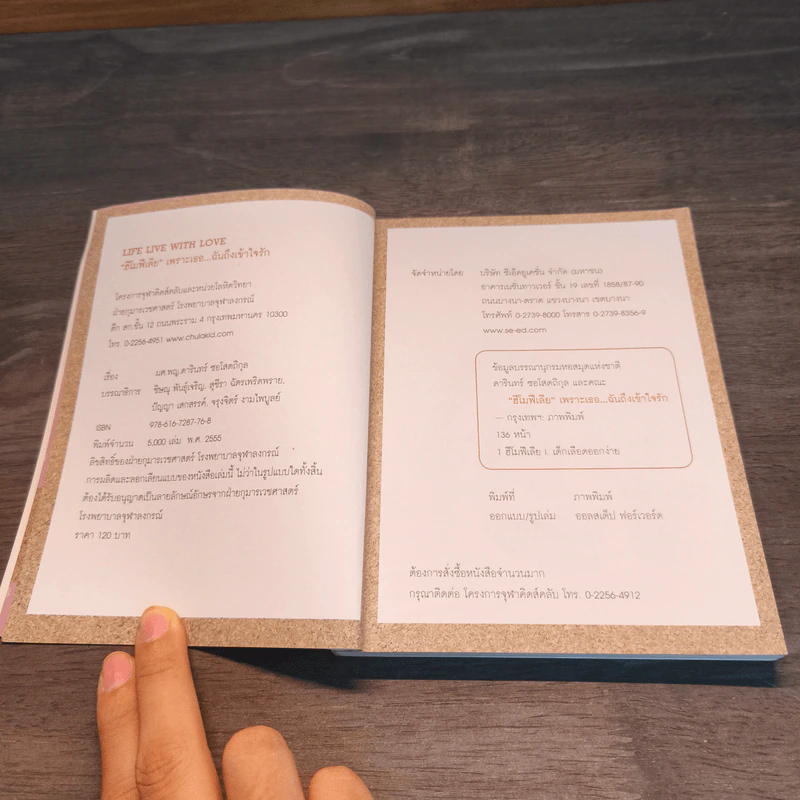 LIFE LIVE WITH LOVE
"ฮีโมฟีเลีย" เพราะเธอ...ฉันถึงเข้าใจรัก
โครงการจุฬาคิดส์คลับและหน่วยโลหิตวิทยา
ฝ่ายกุมารเวชศาสตร์ โรงพยาบาลจุฬาลงกรณ์
ตึก สก.ชั้น 12 ถนนพระราม 4 กรุงเทพมหานคร 10300
โทร. 0-2256-4951 www.chulakid.com
เรื่อง ผศ.พญ.ดารินทร์ ซอโสตถิกุล
บรรณาธิการ ชิษณุ พันธุ์เจริญ, สุชีรา ฉัตรเพริดพราย,
ปัญญา เสกสรรค์, จรุงจิตร์ งามไพบูลย์
ISBN 978-616-7287-76-8
พิมพ์จำนวน 5,000 เล่ม พ.ศ. 2555
ลิขสิทธิ์ของฝ่ายกุมารเวชศาสตร์ โรงพยาบาลจุฬาลงกรณ์
การผลิตและลอกเลียนแบบของหนังสือเล่มนี้ ไม่ว่าในรูปแบบใดทั้งสิ้น
ต้องได้รับอนุญาตเป็นลายลักษณ์อักษรจากฝ่ายกุมารเวชศาสตร์
โรงพยาบาลจุฬาลงกรณ์
ราคา 120 บาท
จัดจำหน่ายโดย บริษัท ซีเอ็ดยูเคชั่น จำกัด (มหาชน)
อาคารเนชั่นทาวเวอร์ ชั้น 19 เลขที่ 1858/87-90
ถนนบางนา-ตราด แขวงบางนา เขตบางนา
โทรศัพท์ 0-2739-8000 โทรสาร 0-2739-8356-9
www.se-ed.com
ข้อมูลบรรณานุกรมหอสมุดแห่งชาติ
ดารินทร์ ซอโสตถิกุล และคณะ
"ฮีโมฟีเลีย" เพราะเธอ...ฉันถึงเข้าใจรัก
— กรุงเทพฯ: ภาพพิมพ์
136 หน้า
1 ฮีโมฟีเลีย I. เด็กเลือดออกง่าย
พิมพ์ที่ ภาพพิมพ์
ออกแบบ/รูปเล่ม ออลสเต็ป ฟอร์เวอร์ด
ต้องการสั่งซื้อหนังสือจำนวนมาก
กรุณาติดต่อ โครงการจุฬาคิดส์คลับ โทร. 0-2256-4912